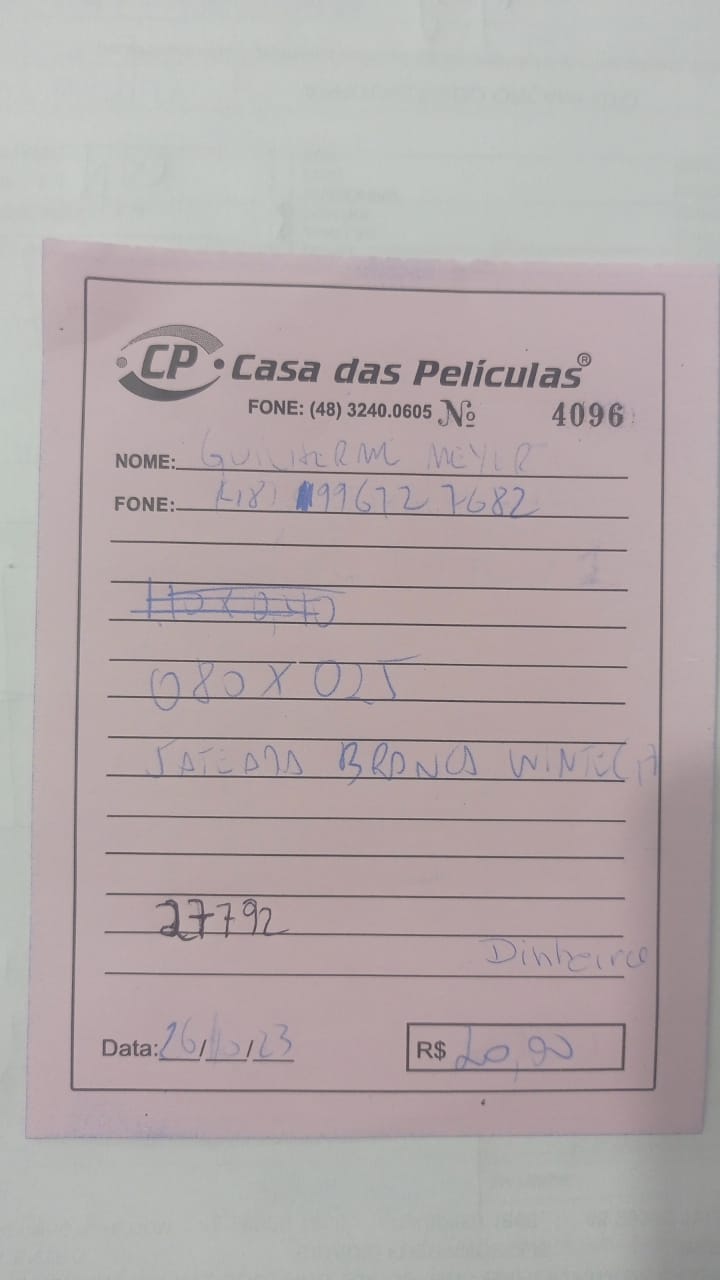 CP Casa das Películas®
FONE: (48) 3240.0605 Nº 4096
NOME: GUILHERME MEYER
FONE: (18) 99672 7682
110 X 0,40
080 X 025
JATEADA BRANCA WINTECH
27792
Dinheiro
Data: 26/10/23 R$ 20,00